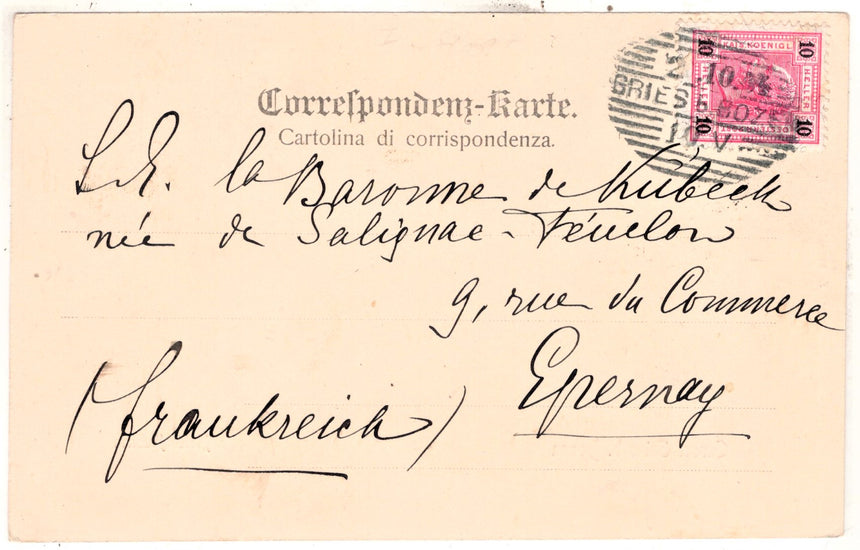 10 KAIS.KOENIGL 10
HELLER
10 10
10.
GRIES b. BOZEN
V
Correspondenz-Karte.
Cartolina di corrispondenza.
la Baronne de Kübeck
née de Salignac-Fénelon
9, rue du Commerce
Epernay
(Frankreich)